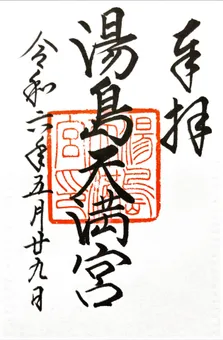 奉拝
湯島天満宮
令和六年五月廿九日